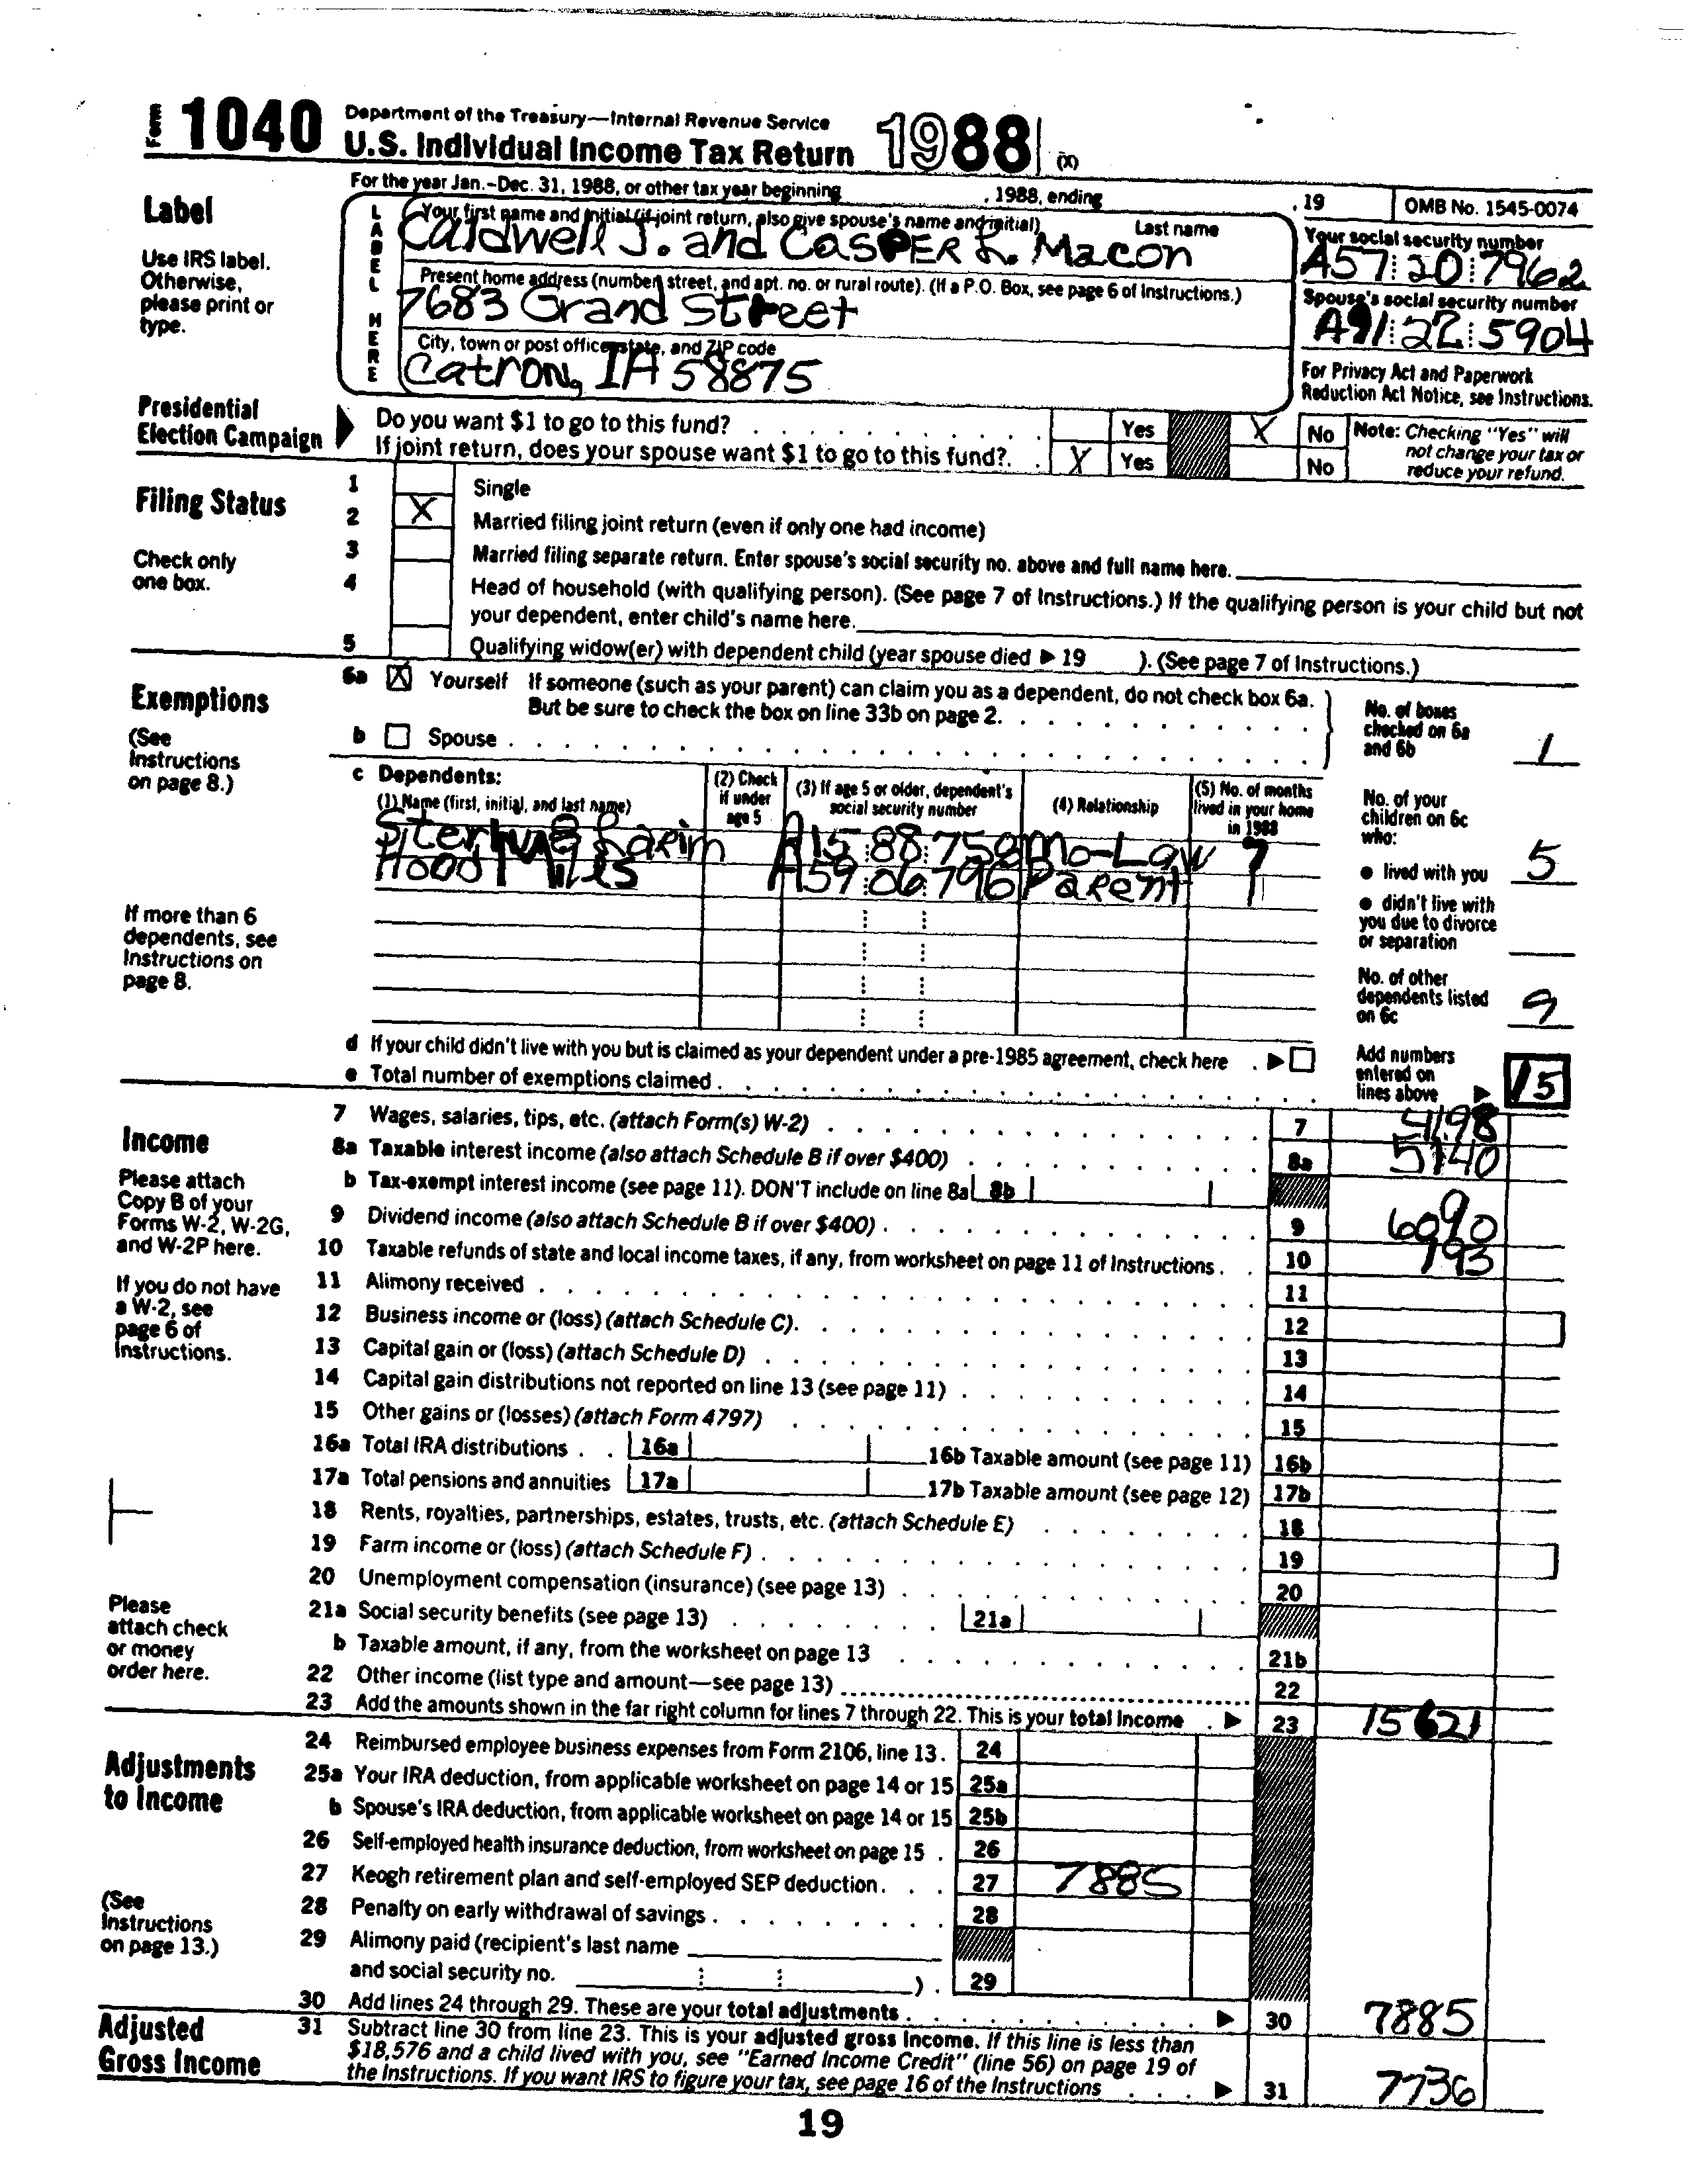 Form 1040 Department of the Treasury—Internal Revenue Service
U.S. Individual Income Tax Return 1988 (X)
For the year Jan.-Dec. 31, 1988, or other tax year beginning , 1988, ending , 19 OMB No. 1545-0074
Label
Use IRS label. Otherwise, please print or type.
LABEL HERE
Your first name and initial (if joint return, also give spouse's name and initial) Last name
Caldwell J. and CASPER L. Macon
Your social security number
A57 20 7962
Present home address (number, street, and apt. no. or rural route). (If a P.O. Box, see page 6 of Instructions.)
7683 Grand Street
Spouse's social security number
A91 22 5904
City, town or post office, state, and ZIP code
Catron, IA 58875
For Privacy Act and Paperwork Reduction Act Notice, see Instructions.
Presidential Election Campaign
Do you want $1 to go to this fund? Yes X No
If joint return, does your spouse want $1 to go to this fund? X Yes No
Note: Checking "Yes" will not change your tax or reduce your refund.
Filing Status
Check only one box.
1 Single
2 X Married filing joint return (even if only one had income)
3 Married filing separate return. Enter spouse's social security no. above and full name here.
4 Head of household (with qualifying person). (See page 7 of Instructions.) If the qualifying person is your child but not
your dependent, enter child's name here.
5 Qualifying widow(er) with dependent child (year spouse died ▶ 19 ). (See page 7 of Instructions.)
Exemptions
(See Instructions on page 8.)
6a X Yourself If someone (such as your parent) can claim you as a dependent, do not check box 6a.
But be sure to check the box on line 33b on page 2.
b Spouse
No. of boxes checked on 6a and 6b 1
c Dependents:
(1) Name (first, initial, and last name)
(2) Check if under age 5
(3) If age 5 or older, dependent's social security number
(4) Relationship
(5) No. of months lived in your home in 1988
A15 88 758 Mo-Law 7
Hood Miles A59 06 796 Parent 7
No. of your children on 6c who:
● lived with you 5
● didn't live with you due to divorce or separation
No. of other dependents listed on 6c 9
If more than 6 dependents, see Instructions on page 8.
d If your child didn't live with you but is claimed as your dependent under a pre-1985 agreement, check here ▶
e Total number of exemptions claimed
Add numbers entered on lines above ▶ 15
Income
Please attach Copy B of your Forms W-2, W-2G, and W-2P here.
If you do not have a W-2, see page 6 of Instructions.
Please attach check or money order here.
7 Wages, salaries, tips, etc. (attach Form(s) W-2) 7 4198
8a Taxable interest income (also attach Schedule B if over $400) 8a 5140
b Tax-exempt interest income (see page 11). DON'T include on line 8a 8b
9 Dividend income (also attach Schedule B if over $400) 9 6090
10 Taxable refunds of state and local income taxes, if any, from worksheet on page 11 of Instructions 10 193
11 Alimony received 11
12 Business income or (loss) (attach Schedule C) 12
13 Capital gain or (loss) (attach Schedule D) 13
14 Capital gain distributions not reported on line 13 (see page 11) 14
15 Other gains or (losses) (attach Form 4797) 15
16a Total IRA distributions 16a 16b Taxable amount (see page 11) 16b
17a Total pensions and annuities 17a 17b Taxable amount (see page 12) 17b
18 Rents, royalties, partnerships, estates, trusts, etc. (attach Schedule E) 18
19 Farm income or (loss) (attach Schedule F) 19
20 Unemployment compensation (insurance) (see page 13) 20
21a Social security benefits (see page 13) 21a
b Taxable amount, if any, from the worksheet on page 13 21b
22 Other income (list type and amount—see page 13) 22
23 Add the amounts shown in the far right column for lines 7 through 22. This is your total income ▶ 23 15621
Adjustments to Income
(See Instructions on page 13.)
24 Reimbursed employee business expenses from Form 2106, line 13. 24
25a Your IRA deduction, from applicable worksheet on page 14 or 15 25a
b Spouse's IRA deduction, from applicable worksheet on page 14 or 15 25b
26 Self-employed health insurance deduction, from worksheet on page 15 26
27 Keogh retirement plan and self-employed SEP deduction 27 7885
28 Penalty on early withdrawal of savings 28
29 Alimony paid (recipient's last name
and social security no. ) 29
30 Add lines 24 through 29. These are your total adjustments ▶ 30 7885
Adjusted Gross Income
31 Subtract line 30 from line 23. This is your adjusted gross income. If this line is less than
$18,576 and a child lived with you, see "Earned Income Credit" (line 56) on page 19 of
the Instructions. If you want IRS to figure your tax, see page 16 of the Instructions ▶ 31 7736
19